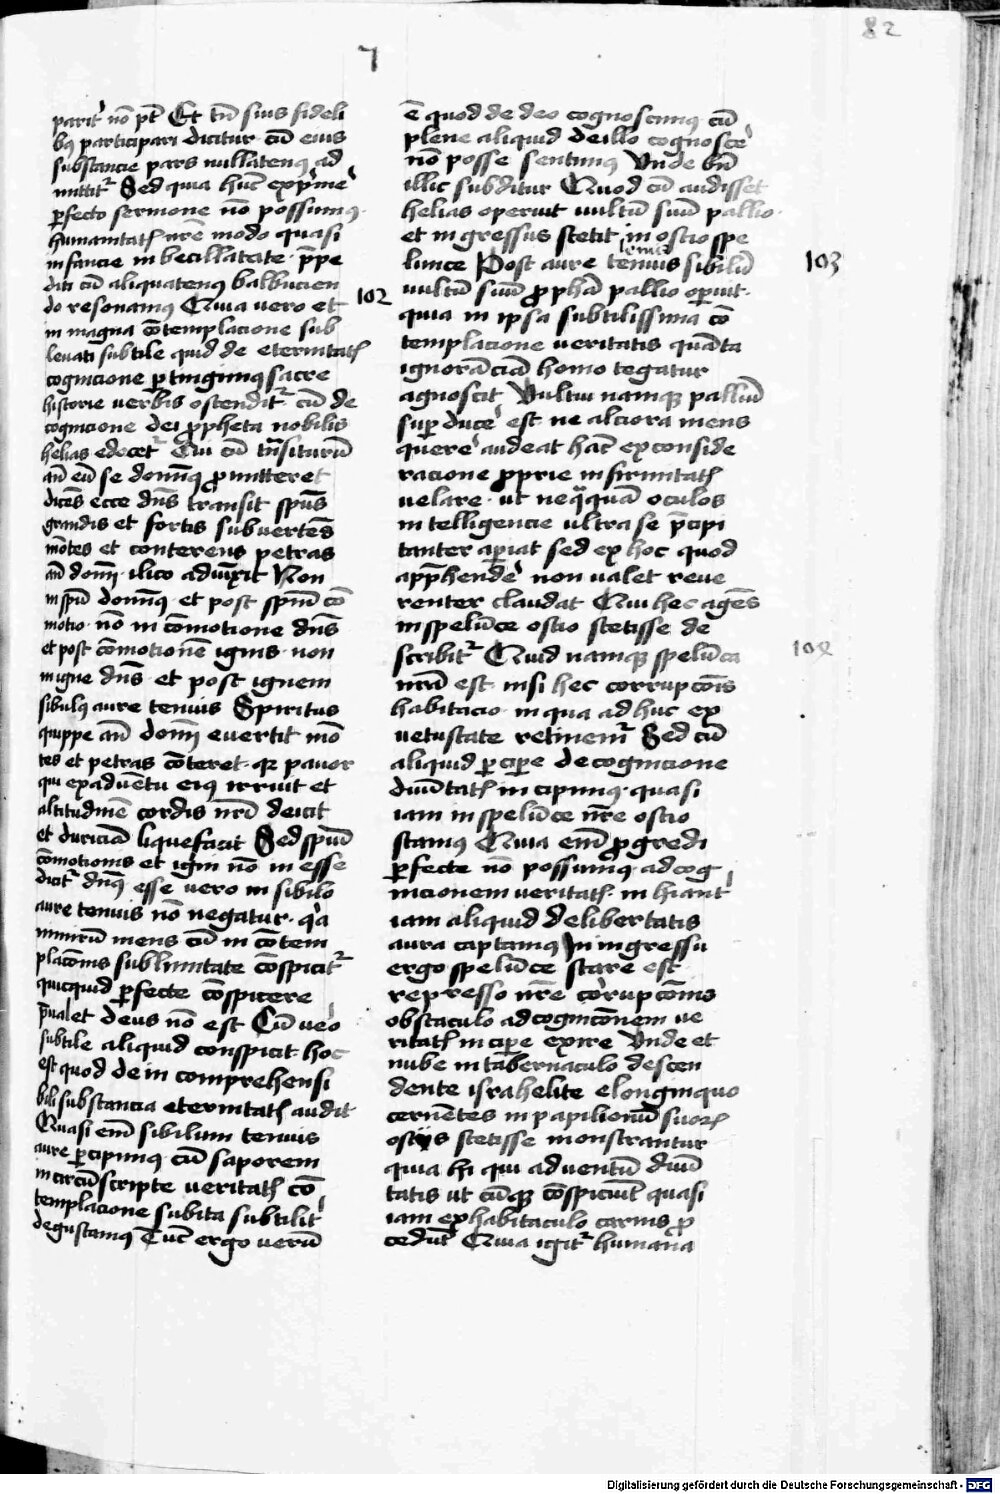 82
7
parit᷑ nō pt̄ Et tn̄ suis fideli
bꝰ participari dicitur cū eius
substancie pars nullatenꝰ ad
mittit᷑ Sed quia hūc exp̄me᷑
ꝑfecto sermone nō possumꝰ·
humanitatꝭ nr̄e modo quasi
infancie inbecillatate · p̄pe
diti cū aliquatenꝰ balbucien
do resonamꝰ Quia vero et 102
in magna ꝯ̄templacione sub
leuati subtile quid de eternitatꝭ
cognicione ꝑtingimꝰ sacre
historie verbis ostendit᷑ cū de
cognicione dei ꝓpheta nobilis
helias edocet᷑ Qui cū tn̄siturū
an̄ eū se domn̄ꝰ ꝓmitteret
dicēs ecce dn̄s transit spūs
grandis et fortis subuertēs
mōtes et conterens petras
an̄ domn̄ · ilico adiūxit Non
in spū domn̄ꝰ · et post spm̄ cō
motio · nō in cōmotione dn̄s
et post cōmotionē ignis · non
in igne dn̄s · et post ignem
sibulꝰ aure tenuis Spiritus
quippe an̄ domn̄ euertit mō
tes et petras cōteret · qꝛ pauor
qui ex aduētu eiꝰ irruit et
altitudinē cordis nr̄i deicit
et duriciā liquefacit Sed spūi
cōmotionis et igni nō inesse
dicit᷑ dn̄ꝰ esse vero in sibilo
aure tenuis nō negatur · qꝛ
nimirū mens cū in cōtem
placōnis sublimitate cōspicit᷑
quicquid ꝑfecte cōspicere
p̄ualet deus nō est Cū vero
subtile aliquid conspicit hoc
est quod de incomprehensi
bili substancia eternitatꝭ audit
Quasi em̄ sibilum tenuis
aure ꝑcipimꝰ cū saporem
incircūscripte veritatꝭ cō
templacione subita subtilit᷑
degustamꝰ Tūc ergo verū
ē quod de deo cognoscimꝰ cū
plene aliquid de illo cognosce᷑
nō posse sentimꝰ Vnde bn̄
illic subditur Quod cū audisset
helias operuit uultū suū pallio ·
et ingressus stetit in ostio spe
lunce Post aure tenuis sibilū 103
uultū suū ꝓphā pallio oꝑuit ·
quia in ipsa subtilissima cō
templacione veritatis quāta
ignorāciā homo tegatur
agnoscit Vultui namqꝫ palliū
suꝑ duce᷑ est · ne alciora mens
quere᷑ audeat hāc ex conside
racione ꝓprie infirmitatꝭ
velare · ut neq̄quā oculos
intelligencie ultra se p̄cipi
tanter aꝑiat sed ex hoc quod
app̄hende᷑ non valet reue
renter claudat Qui hec agēs
in spelūce ostio stetisse de
scribit᷑ Quid namqꝫ spelūca 104
nr̄a est · nisi hec corrupcōis
habitacio · in qua adhuc ex
vetustate retinem᷑ Sed cū
aliquid ꝑciꝑe de cognicione
diuītatꝭ incipimꝰ · quasi
iam in spelūce nr̄e ostio
stamꝰ Quia em̄ ꝓgredi
ꝑfecte nō possumꝰ · ad cog
nicionem veritatꝭ · inhiant᷑
iam aliquid de libertatis
aura captamꝰ In ingressu
ergo spelūce stare est ·
represso nr̄e corupcōnis
obstaculo ad cognicōnem ve
ritatꝭ inciꝑe exire Vnde et
nube in tabernaculo descen
dente israhelite elonginquo
cernētes in papilionū suorꝭ
ostijs stetisse monstrantur
quia hi qui aduentū diui
tatis ut cūqꝫ cōspiciūt quasi
iam ex habitaculo carnis ꝓ
cedūt Quia igit᷑ humana
Digitalisierung gefördert durch die Deutsche Forschungsgemeinschaft - DFG